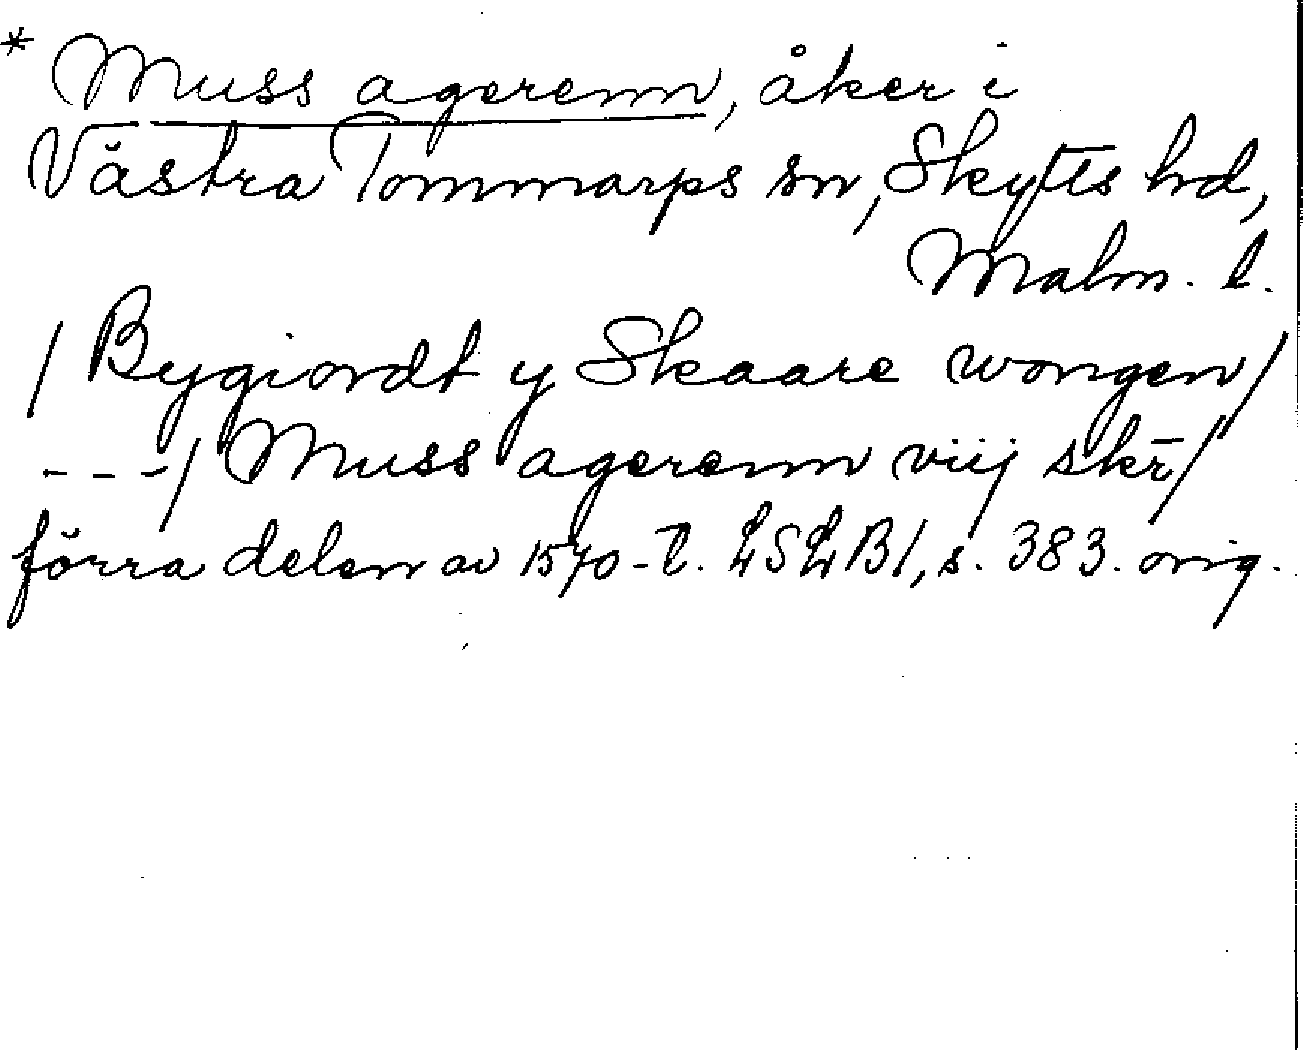 * Muss agerenn, åker i
Västra Tommarps sn, Skytts hd,
Malm. l.
/ Bygiordt y Skaare wongen /
- - - / Muss agerenn viij skr̄ /
förra delen av 1570-t. LSLB1, s. 383. orig.